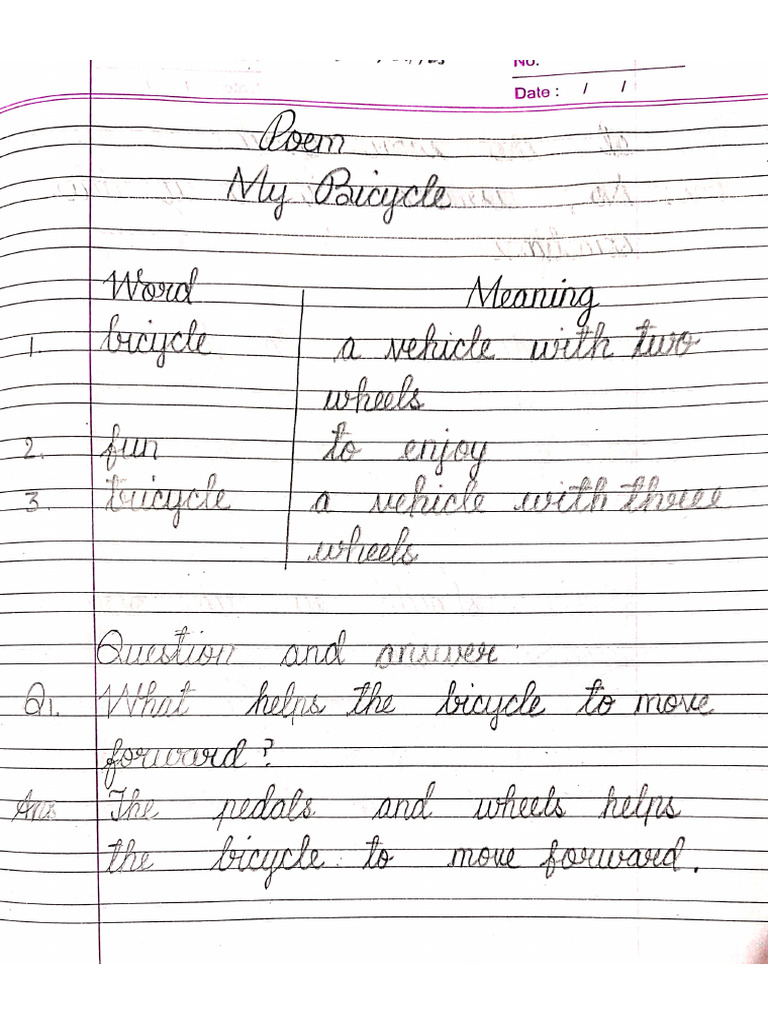 No.
Date : / /
Poem
My Bicycle
Word Meaning
1. bicycle a vehicle with two
wheels
2. fun to enjoy
3. tricycle a vehicle with three
wheels
Question and answer
Q1. What helps the bicycle to move
forward?
Ans The pedals and wheels helps
the bicycle to move forward.